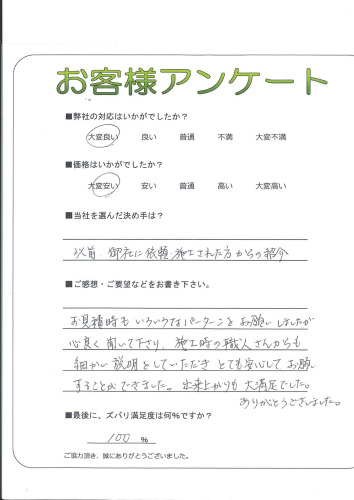 お客様アンケート
■弊社の対応はいかがでしたか?
大変良い 良い 普通 不満 大変不満
■価格はいかがでしたか?
大変安い 安い 普通 高い 大変高い
■当社を選んだ決め手は?
以前、御社に依頼・施工された方からの紹介
■ご感想・ご要望などをお書き下さい。
お見積時もいろいろなパターンをお願いしましたが
心良く聞いて下さり、施工時の職人さんからも
細かい説明をしていただきとても安心してお願い
することができました。出来上がりも大満足でした。
ありがとうございました。
■最後に、ズバリ満足度は何%ですか?
100 %
ご協力頂き、誠にありがとうございました。